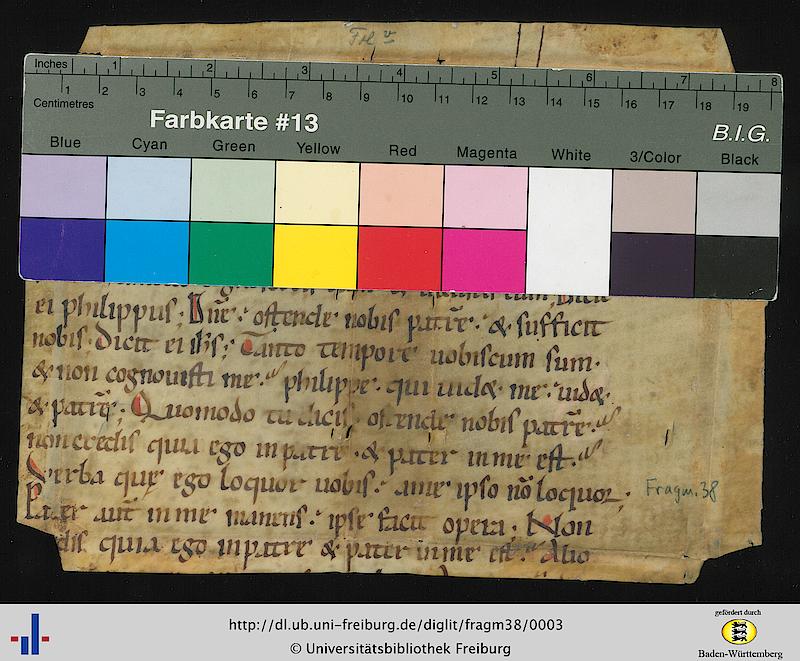 Fol v
Inches 1 2 3 4 5 6 7 8
Centimetres 1 2 3 4 5 6 7 8 9 10 11 12 13 14 15 16 17 18 19
Farbkarte #13
B.I.G.
Blue Cyan Green Yellow Red Magenta White 3/Color Black
ei philippus. Dn̄e. ostende nobis patrē. & sufficit
nobis. Dicit ei ih̄s; Tanto tempore uobiscum sum.
& non cognouisti me. philippe. qui uid& me. uid&
& patrē. Quomodo tu dicis. ostende nobis patrē.
non credis quia ego in patre. & pater in me est.
Verba quę ego loquor uobis. a me ipso nō loquor.
Pater aut̄ in me manens. ipse facit opera. Non
quia ego in patre & pater in me est. Alio
Fragm. 38
http://dl.ub.uni-freiburg.de/diglit/fragm38/0003
© Universitätsbibliothek Freiburg
gefördert durch
Baden-Württemberg